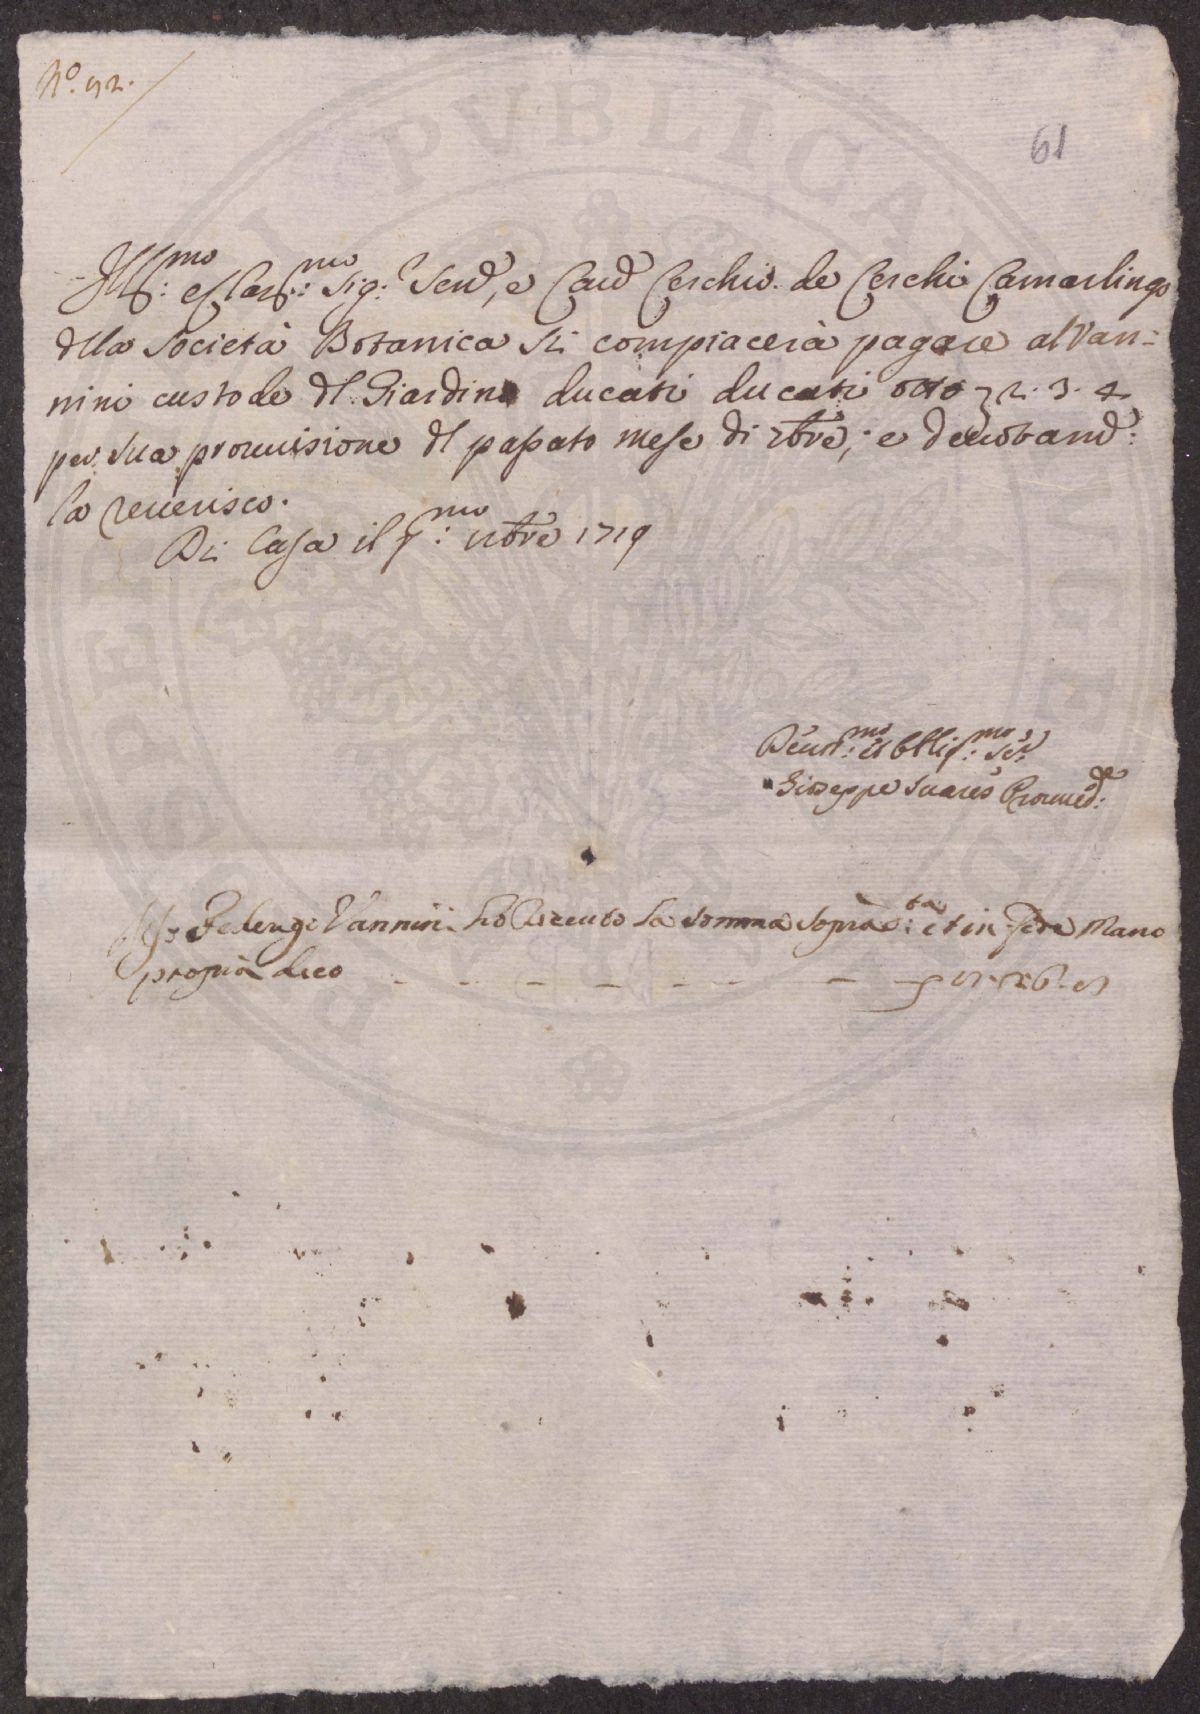 N.o 92.
61
Ill:mo e Clar:mo Sig:r Send, e Card Cerchio de Cerchi Camarlingo
dlla Società Botanica Si compiacerà pagare al Van=
nini custode dl Giardino ducati ducati otto 2. 3. 4
per sua prouuisione dl passato mese di 8bre, e deuotamd:
la reuerisco.
Di Casa il p:mo nbre 1719
Deuot:mo et Obblig:mo Ser
Giuseppe Suares Prouued:re
Io Vannini ho riceuto la somma sopra:ta et in fede Mano
propria dico